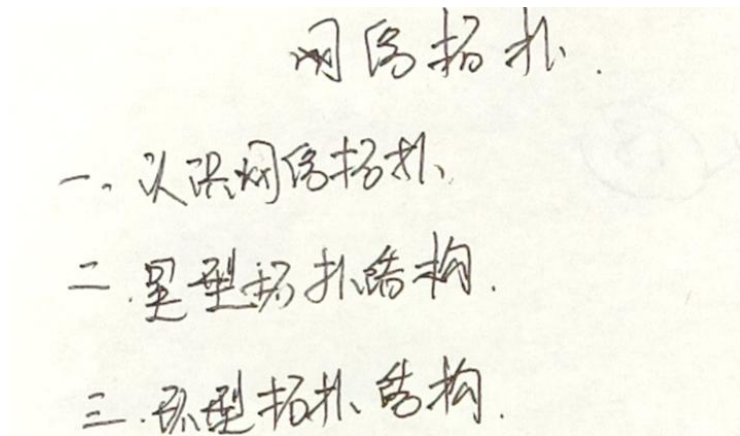 网络拓扑.
一、认识网络拓扑
二.星型拓扑结构.
三.环型拓扑结构.